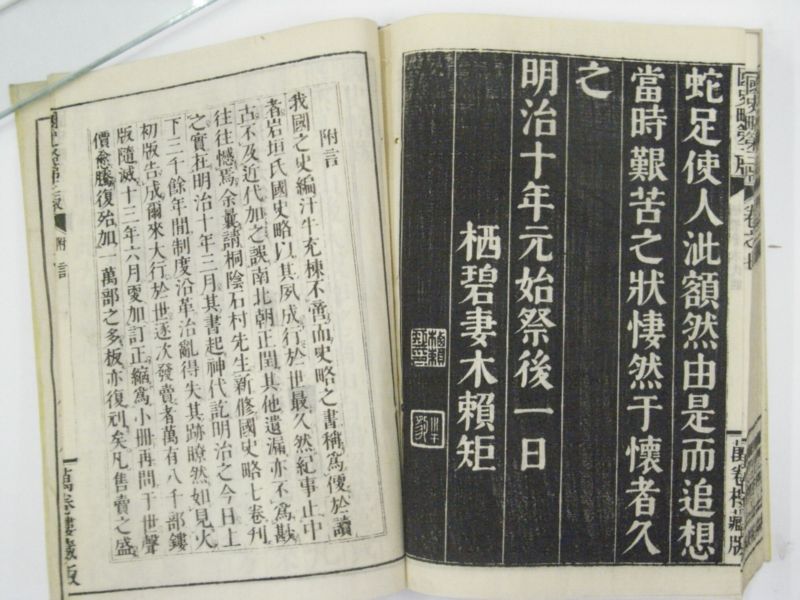 蛇足使人泚額然由是而追想
當時艱苦之狀悽然于懷者久
之
明治十年元始祭後一日
栖碧妻木賴矩
附言
我國之史編汗牛充棟不啻而史略之書稱爲便於讀
者岩垣氏國史略以其夙成行於世最久然紀事止中
古不及近代加之誤南北朝正閏其他遺漏亦不爲尠
往往憾焉余嚢請桐陰石村先生新修國史略七卷刋
之實在明治十年三月其書起神代訖明治之今日上
下三千餘年間制度沿革治亂得失其跡瞭然如見火
初版告成爾來大行於世逐次發賣者萬有八千部鏤
版隨滅十三年六月更加訂正縮爲小冊再問于世聲
價愈騰復殆加一萬部之多板亦復刓矣凡售賣之盛
附言
萬卷樓藏版
萬卷樓藏版